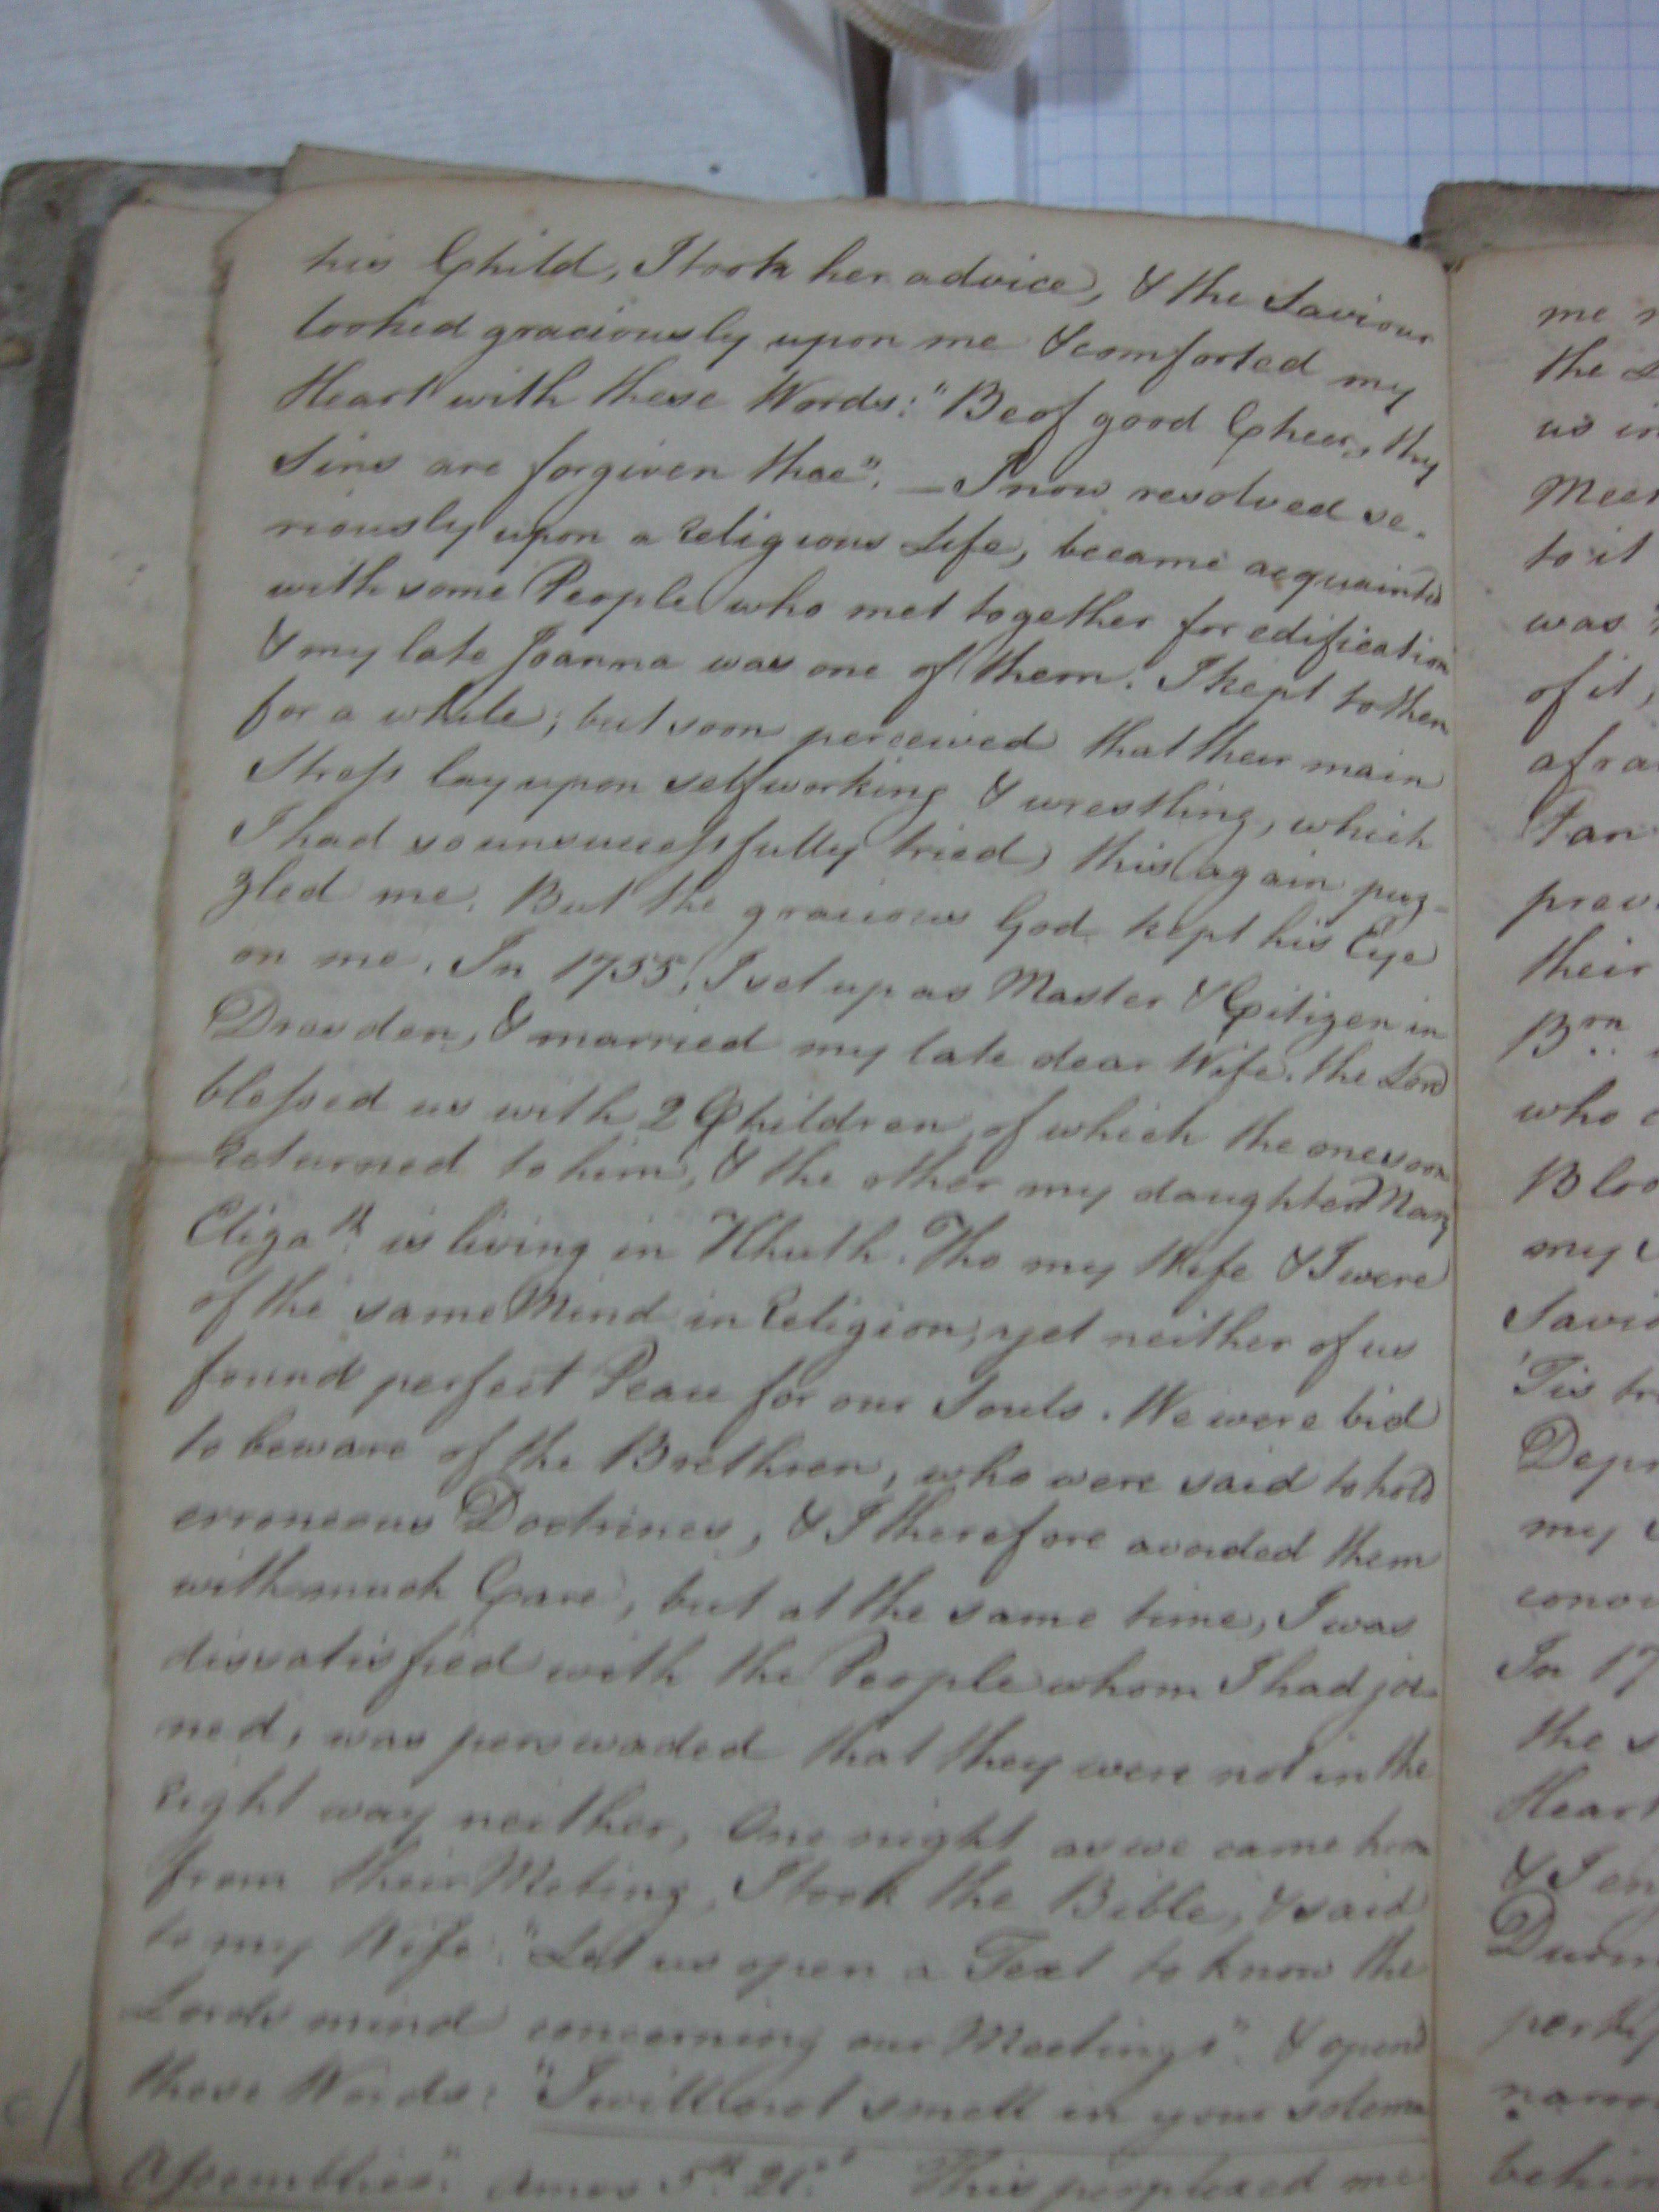 his Child, I took her advice, & the Saviour
looked graciously upon me & comforted my
Heart with these Words: "Be of good Cheer, thy
Sins are forgiven thee". – I now resolved se-
riously upon a religious Life, became acquainted
with some People who met together for edification
& my late Joanna was one of them. I kept to them
for a while; but soon perceived that their main
Stress lay upon selfworking & wrestling, which
I had so unsuccessfully tried, this again puz-
zled me. But the gracious God kept his Eye
on me. In 1755, I set up as Master & Citizen in
Dresden, & married my late dear Wife. the Lord
blessed us with 2 Children, of which the one soon
returned to him, & the other my daughter Mary
Eliza.th is living in Hhuth. Tho my Wife & I were
of the same Mind in Religion, yet neither of us
found perfect Peace for our Souls. We were bid
to beware of the Brethren, who were said to hold
erroneous Doctrines, & I therefore avoided them
with much Care, but at the same time, I was
dissatisfied with the People whom I had joi-
ned, was perswaded that they were not in the
right way neither, One night as we came hom
from their Meting, I took the Bible, & said
to my Wife: "Let us open a Text to know the
Lords mind concerning our Meetings". & opend
these Words: "I will not smell in your solemn
Assemblies". Amos 5th. 21. This perplexed me
me
the
us in
Meet
to it
was
of it,
afra
Fan
prev
their
Brn
who
Bloo
my
Savio
'Tis tr
Depr
my
convi
In 17
the s
Heart
& I en
Durin
behin